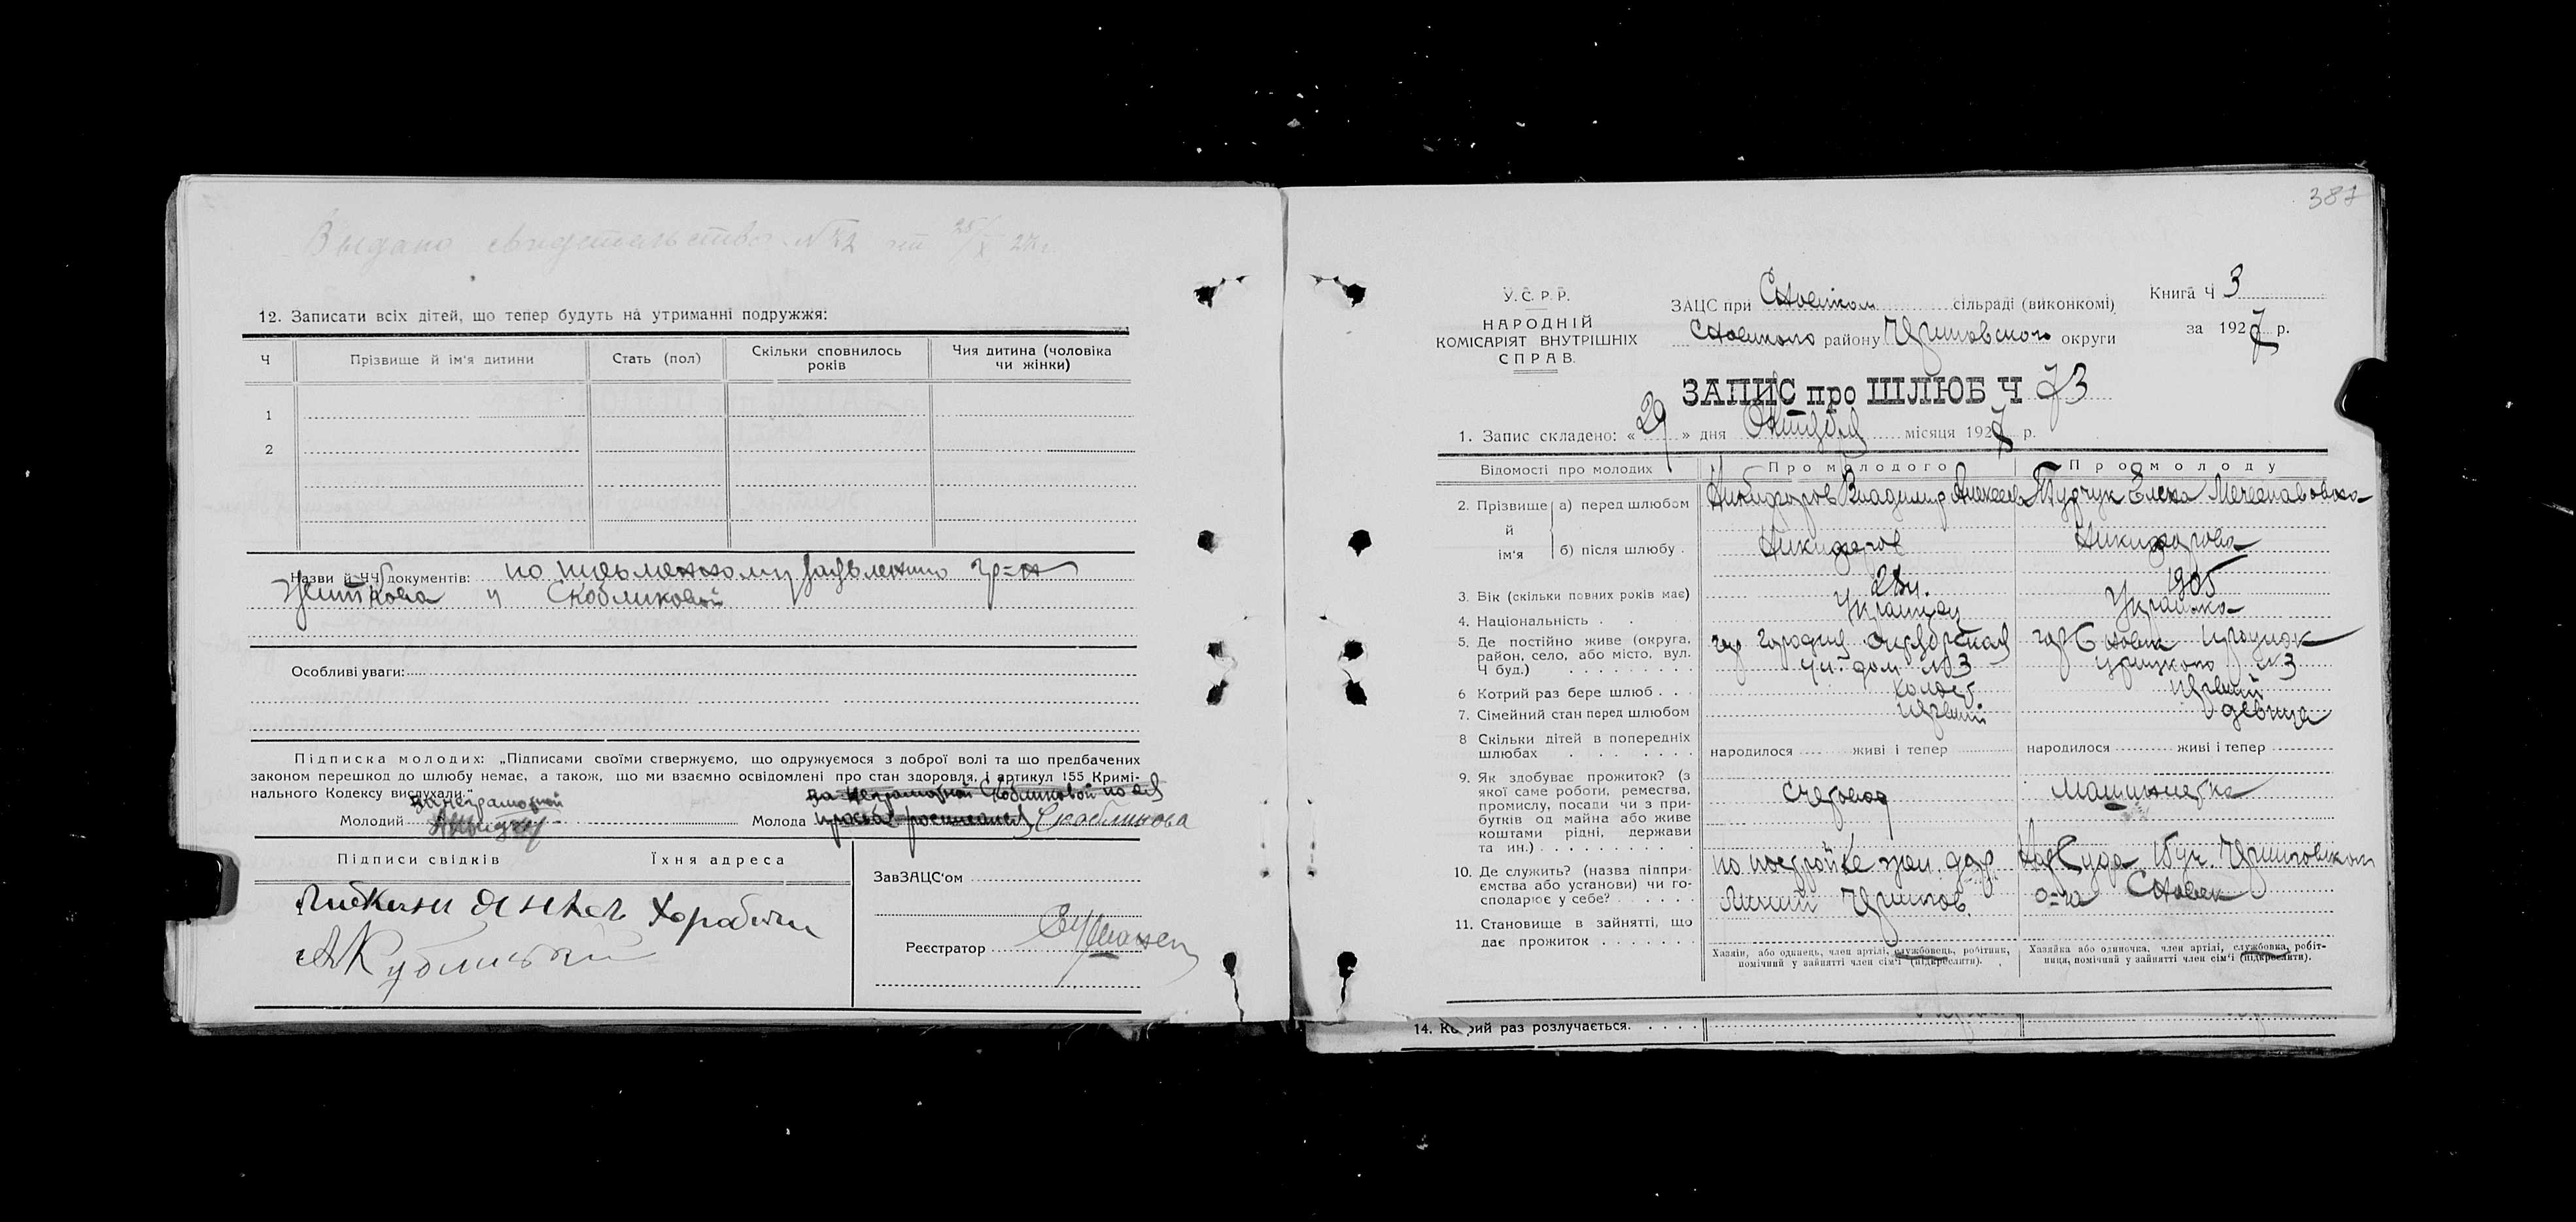 Выдано свидетельство №72 от 25/X 27 г.
12. Записати всіх дітей, що тепер будуть на утриманні подружжя:
Ч Прізвище й ім'я дитини Стать (пол) Скільки сповнилось років Чия дитина (чоловіка чи жінки)
1
2
Назви й ЧЧ документів: по письменному заявлению гр-н
Житкова и Скобликовой
Особливі уваги:
Підписка молодих: „Підписами своїми стверджуємо, що одружуємося з доброї волі та що предбачених
законом перешкод до шлюбу немає, а також, що ми взаємно освідомлені про стан здоровля, і артикул 155 Кримі-
нального Кодексу вислухали."
за неграмотной Скобликовой по ея
за неграмотной
Молодий Молода просьбе росписался Скобликова
Підписи свідків Їхня адреса
ЗавЗАЦС'ом
Реєстратор
387
У. С. Р. Р.
НАРОДНІЙ
КОМІСАРІЯТ ВНУТРІШНІХ
СПРАВ.
ЗАЦС при Сновском сільраді (виконкомі)
Сновского району Черниговского округи
Книга Ч 3
за 1927 р.
ЗАПИС про ШЛЮБ Ч 73
1. Запис складено: « 29 » дня Октября місяця 1927 р.
Відомості про молодих Про молодого Про молоду
2. Прізвище й ім'я а) перед шлюбом Никифоров Владимир Алексеев Елена Мечеславовна
б) після шлюбу Никифоров Никифорова
3. Вік (скільки повних років має) 28 л. 1905
4. Національність Украинец Украинка
5. Де постійно живе (округа, район, село, або місто, вул. Ч буд.) гор Городня Октябрьская ул. дом №3 гор Сновск №3
6 Котрий раз бере шлюб холост первый
7. Сімейний стан перед шлюбом первый девица
8 Скільки дітей в попередніх шлюбах народилося живі і тепер народилося живі і тепер
9. Як здобуває прожиток? (з якої саме роботи, ремества, промислу, посади чи з прибутків од майна або живе коштами рідні, держави та ин.) счетовод Машинистка
10. Де служить? (назва підприємства або установи) чи господарює у себе? по постройке жел. дор. Линии Чернигов. НарСуда 15 уч. Черниговского о-га Сновск
11. Становище в зайнятті, що дає прожиток
Хазяїн, або одинець, член артілі, службовець, робітник,
помічний у зайнятті член сім'ї (підкреслити).
Хазяйка або одиночка, член артілі, службовка, робіт-
ниця, помічний у зайнятті член сім'ї (підкреслити).
14. Котрий раз розлучається.